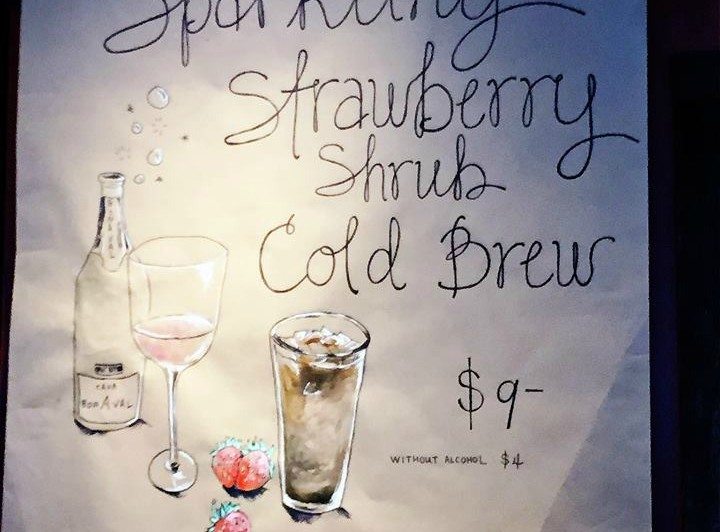 Sparkling
Strawberry
Shrub
Cold Brew
$9-
WITHOUT ALCOHOL $4
CAVA